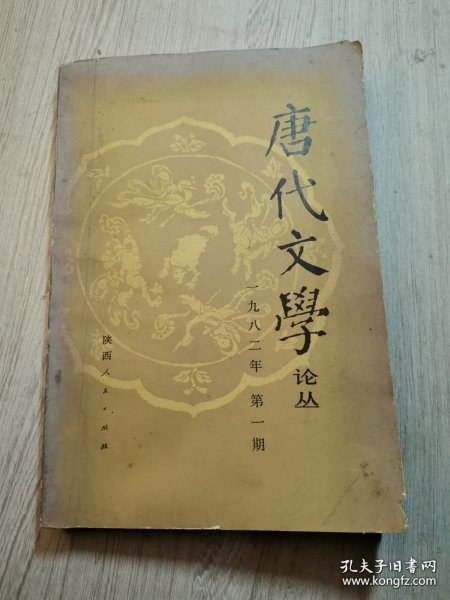 唐代文學
论丛
一九八二年 第一期
陕西人民出版社
孔夫子旧书网
www.kongfz.com